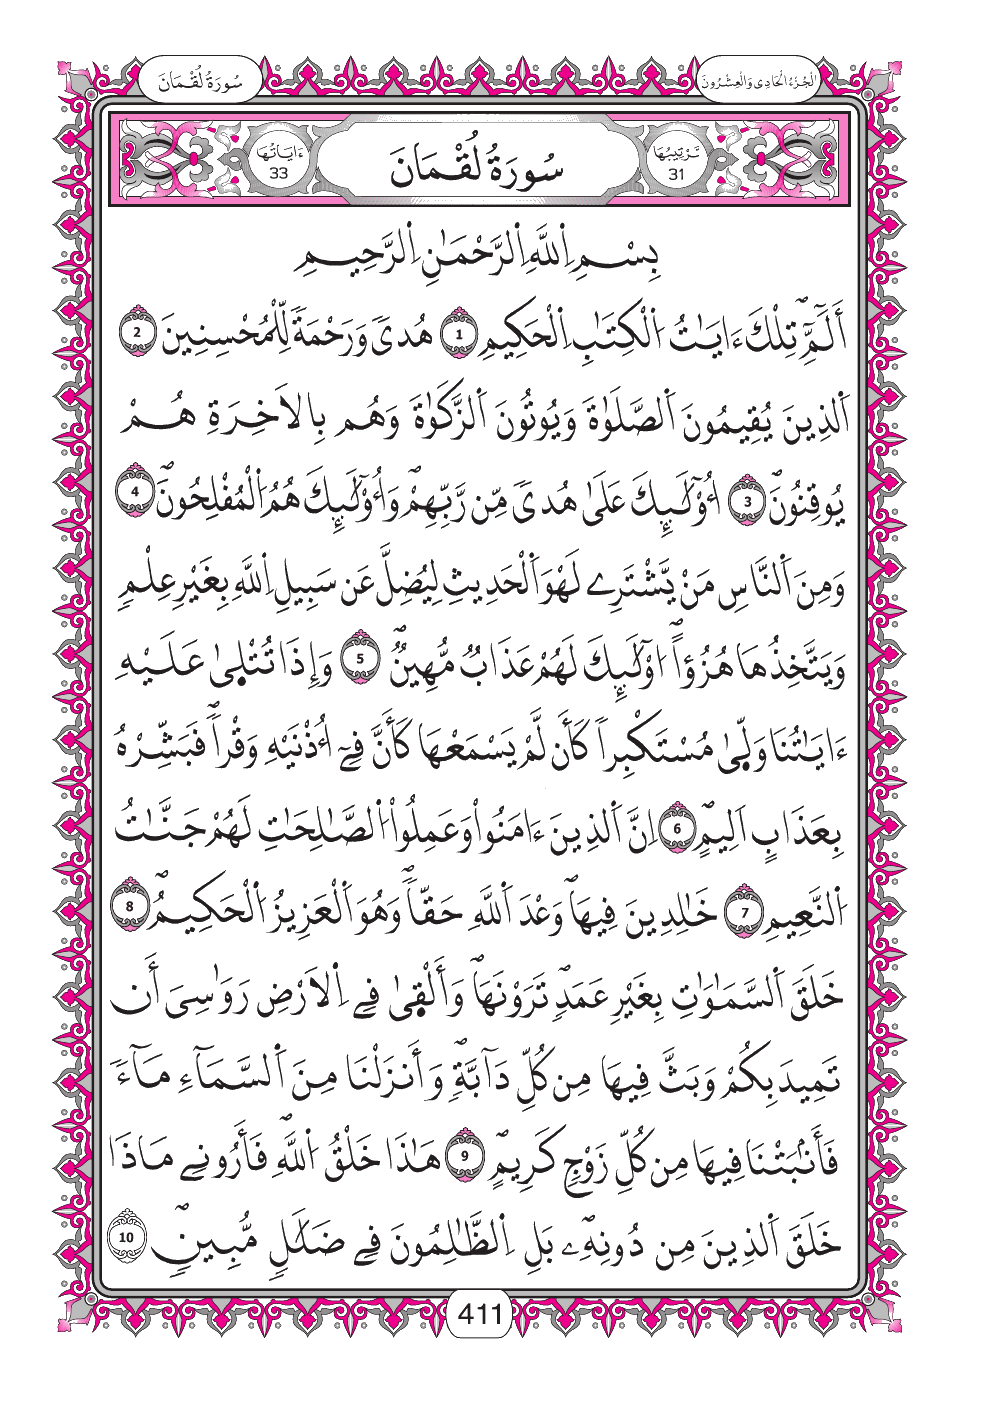 سُورَةُ لُقْمَانَ
اَلْجُزْءُ الْحَادِي وَالْعِشْرُونَ
ءَايَاتُهَا 33
سُورَةُ لُقْمَانَ
تَرْتِيبُهَا 31
بِسْمِ اِللَّهِ اِلرَّحْمَٰنِ اِلرَّحِيمِ
أَلَٓمِّٓۖ تِلْكَ ءَايَٰتُ اُلْكِتَٰبِ اِلْحَكِيمِ 1 هُدىٗ وَرَحْمَةٗ لِّلْمُحْسِنِينَ 2
اَلذِينَ يُقِيمُونَ اَلصَّلَوٰةَ وَيُوتُونَ اَلزَّكَوٰةَ وَهُم بِالَاخِرَةِ هُمْ
يُوقِنُونَۖ 3 أُوْلَٰٓئِكَ عَلَىٰ هُدىٗ مِّن رَّبِّهِمْۖ وَأُوْلَٰٓئِكَ هُمُ اُلْمُفْلِحُونَۖ 4
وَمِنَ اَلنَّاسِ مَنْ يَّشْتَرِے لَهْوَ اَلْحَدِيثِ لِيُضِلَّ عَن سَبِيلِ اِللَّهِ بِغَيْرِ عِلْمٖ
وَيَتَّخِذُهَا هُزُؤاًۖ ا۟وْلَٰٓئِكَ لَهُمْ عَذَابٞ مُّهِينٞۖ 5 وَإِذَا تُتْلَىٰ عَلَيْهِ
ءَايَٰتُنَا وَلَّىٰ مُسْتَكْبِراٗ كَأَن لَّمْ يَسْمَعْهَا كَأَنَّ فِےٓ أُذْنَيْهِ وَقْراٗۖ فَبَشِّرْهُ
بِعَذَابٍ اَلِيمٍۖ 6 اِنَّ اَلذِينَ ءَامَنُواْ وَعَمِلُواْ اُلصَّٰلِحَٰتِ لَهُمْ جَنَّٰتُ
اُلنَّعِيمِ 7 خَٰلِدِينَ فِيهَاۖ وَعْدَ اَللَّهِ حَقّاٗۖ وَهُوَ اَلْعَزِيزُ اُلْحَكِيمُۖ 8
خَلَقَ اَلسَّمَٰوَٰتِ بِغَيْرِ عَمَدٖ تَرَوْنَهَاۖ وَأَلْقَىٰ فِے اِلَارْضِ رَوَٰسِيَ أَن
تَمِيدَ بِكُمْ وَبَثَّ فِيهَا مِن كُلِّ دَآبَّةٖۖ وَأَنزَلْنَا مِنَ اَلسَّمَآءِ مَآءٗ
فَأَنۢبَتْنَا فِيهَا مِن كُلِّ زَوْجٖ كَرِيمٍۖ 9 هَٰذَا خَلْقُ اُللَّهِۖ فَأَرُونِے مَاذَا
خَلَقَ اَلذِينَ مِن دُونِهِۦۖ بَلِ اِلظَّٰلِمُونَ فِے ضَلَٰلٖ مُّبِينٖۖ 10
411